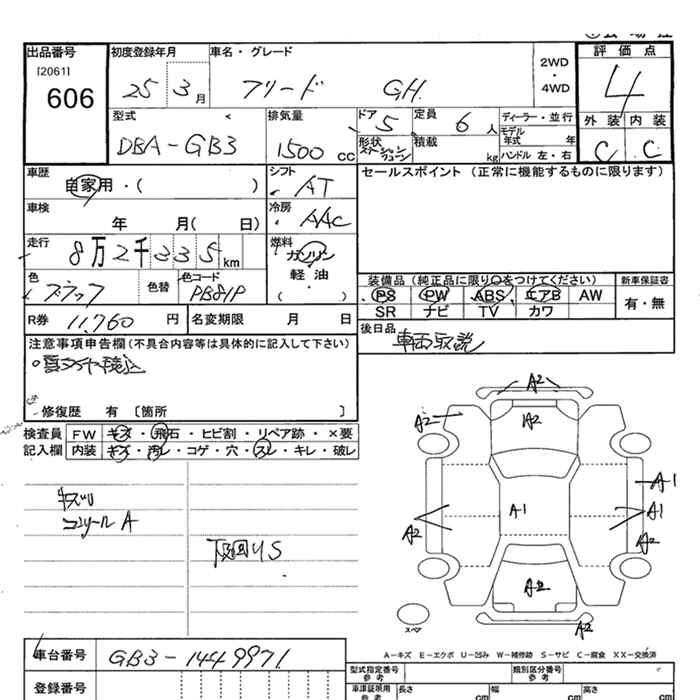 出品番号
[2061]
606
初度登録年月
25 3月
車名・グレード
フリード GH
2WD
・
4WD
評価点
4
外装 内装
C C
型式
DBA-GB3
排気量
1500cc
ドア
5
定員
6人
形状
ステーションワゴン
積載
kg
ディーラー・並行
モデル年式 年
ハンドル 左・右
車歴
自家用・( )
シフト
AT
セールスポイント (正常に機能するものに限ります)
車検
年 月( 日)
冷房
AAC
走行
8万2千335km
燃料
ガソリン
軽・油
( )
色
ブラック
色替
色コード
PB81P
装備品 (純正品に限り○をつけてください)
新車保証書
PS PW ABS エアB AW
有・無
SR ナビ TV カワ
R券 11,760円
名変期限 月 日
後日品
車両取説
注意事項申告欄(不具合内容等は具体的に記入して下さい)
修復歴 有 [箇所 ]
検査員
記入欄
FW キズ・飛石・ヒビ割・リペア跡・×要
内装 キズ・汚レ・コゲ・穴・スレ・キレ・破レ
キズU
コンソールA
下回りS
A2
A2
A2
A1
A1
A1
A2
A2
A2
A2
スペア
A-キズ E-エクボ U-凹み W-補修跡 S-サビ C-腐食 XX-交換済
車台番号
GB3-1449971
登録番号
型式指定番号
参考
類別区分番号
参考
車庫証明用
参考
長さ cm
幅 cm
高さ cm